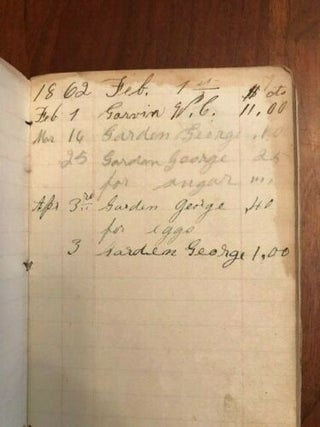 1862 Feb. 1st $ cts
Feb 1 Garvin W. C. 11.00
Mar 14 Garden George .10
25 Garden George 25
for sugar
Apr 3rd Garden George .40
for eggs
3 Garden George 1,00